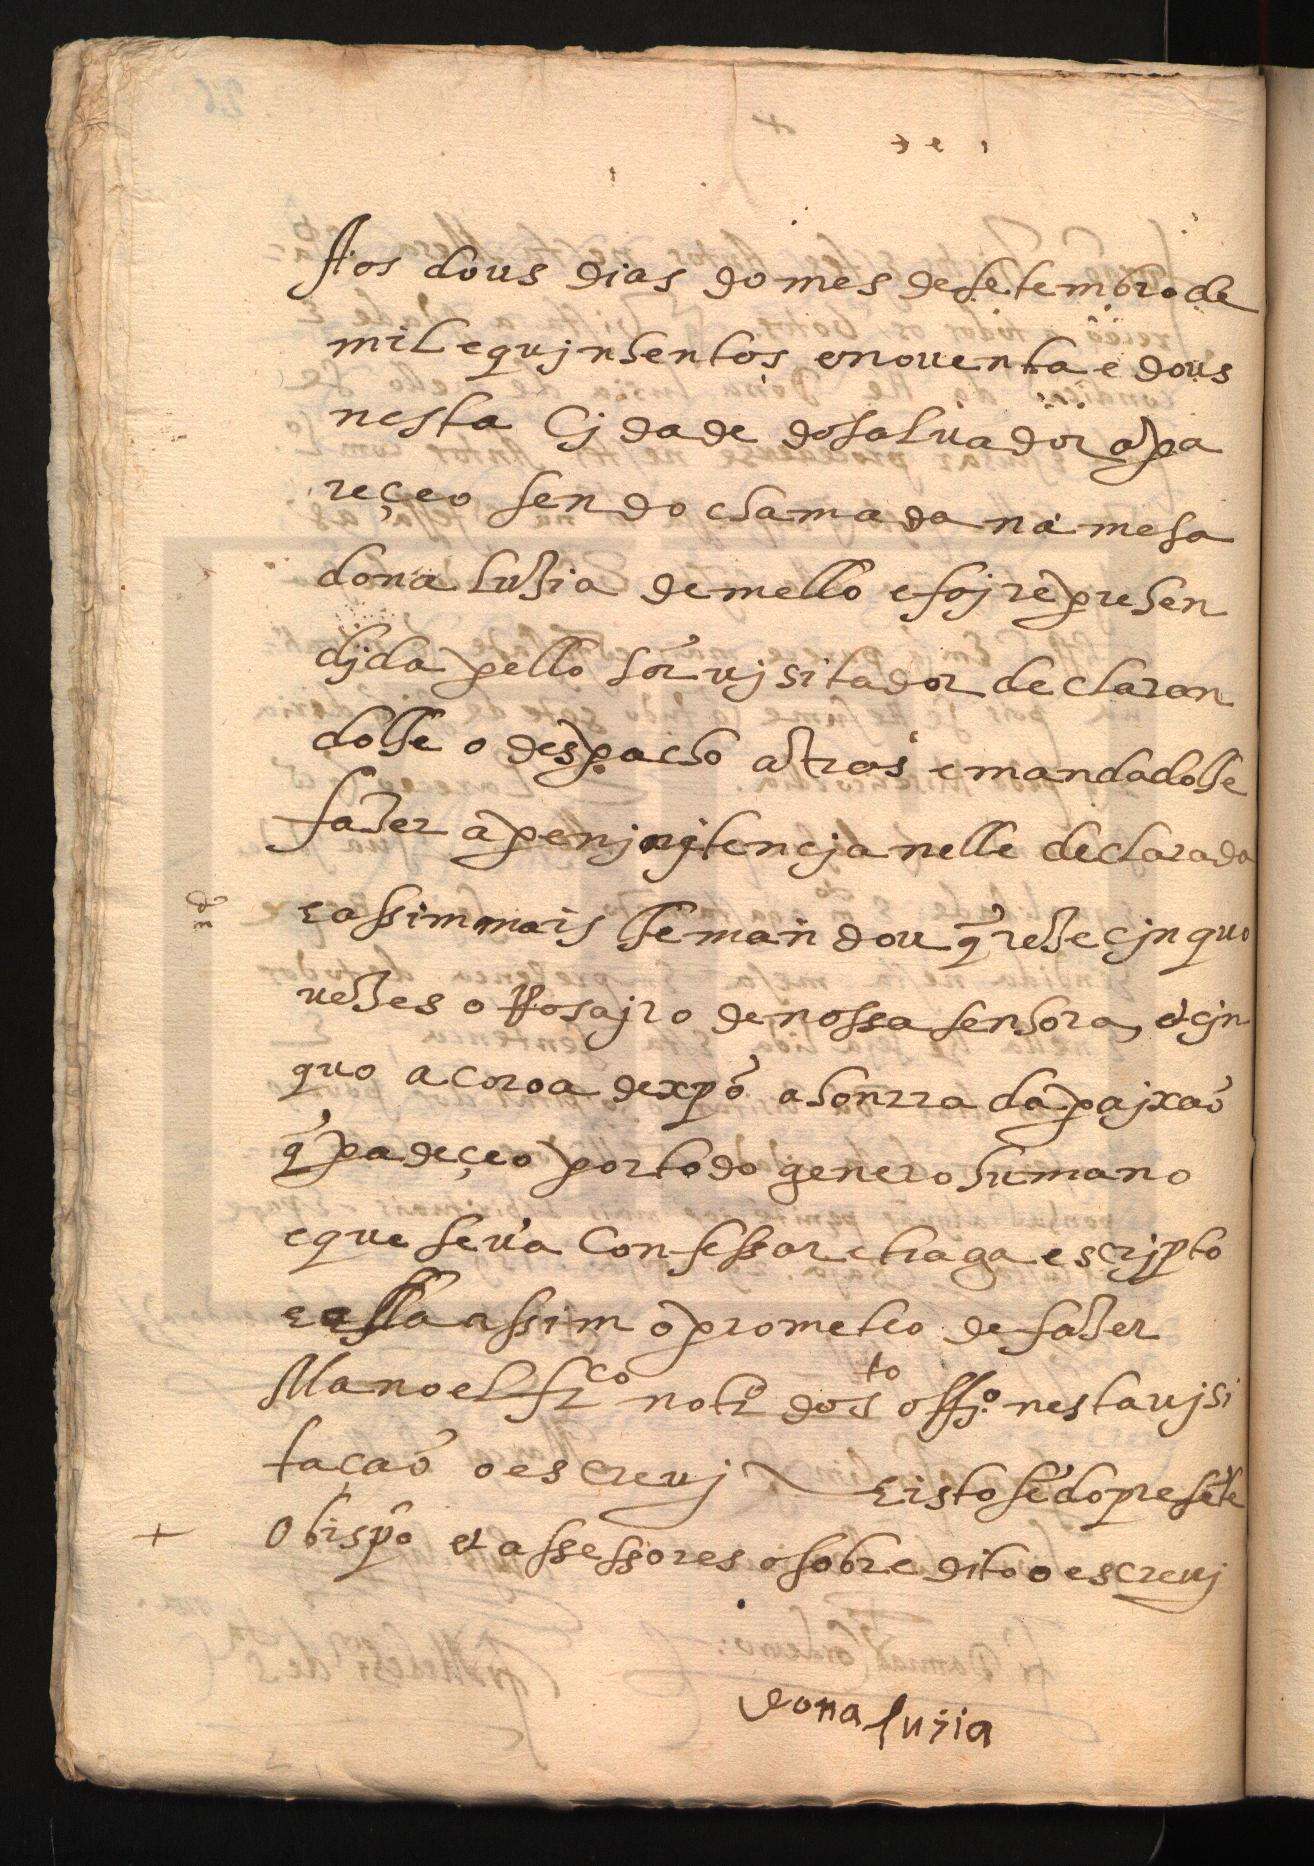 Aos dous dias do mes de setembro de
mil e qujnhentos e nouenta e dous
nesta Cjdade do saluador apa
reçeo sendo chamada na mesa
dona luzia de mello e foj reprehen
djda pello sór vjsitador declaran
dolhe o despacho atras e mandadolhe
fazer a penjtencja nelle declarada
e assim mais lhe mandou q̃ reze cjnquo
vezes o Rosajro de nossa senhora, et cjn
quo a coroa de xpõ a honrra da pajxaõ
q̃ padeçeo por todo genero humano
e que se va Confessar e traga escrjpto
e ella assim o prometeo de fazer
Manoel frco notro do sto offjo nesta vjsi
tacaõ o escreuj E isto sẽdo presẽte
o bispõ et assessores o sobre dito o escreuj
dona luzia